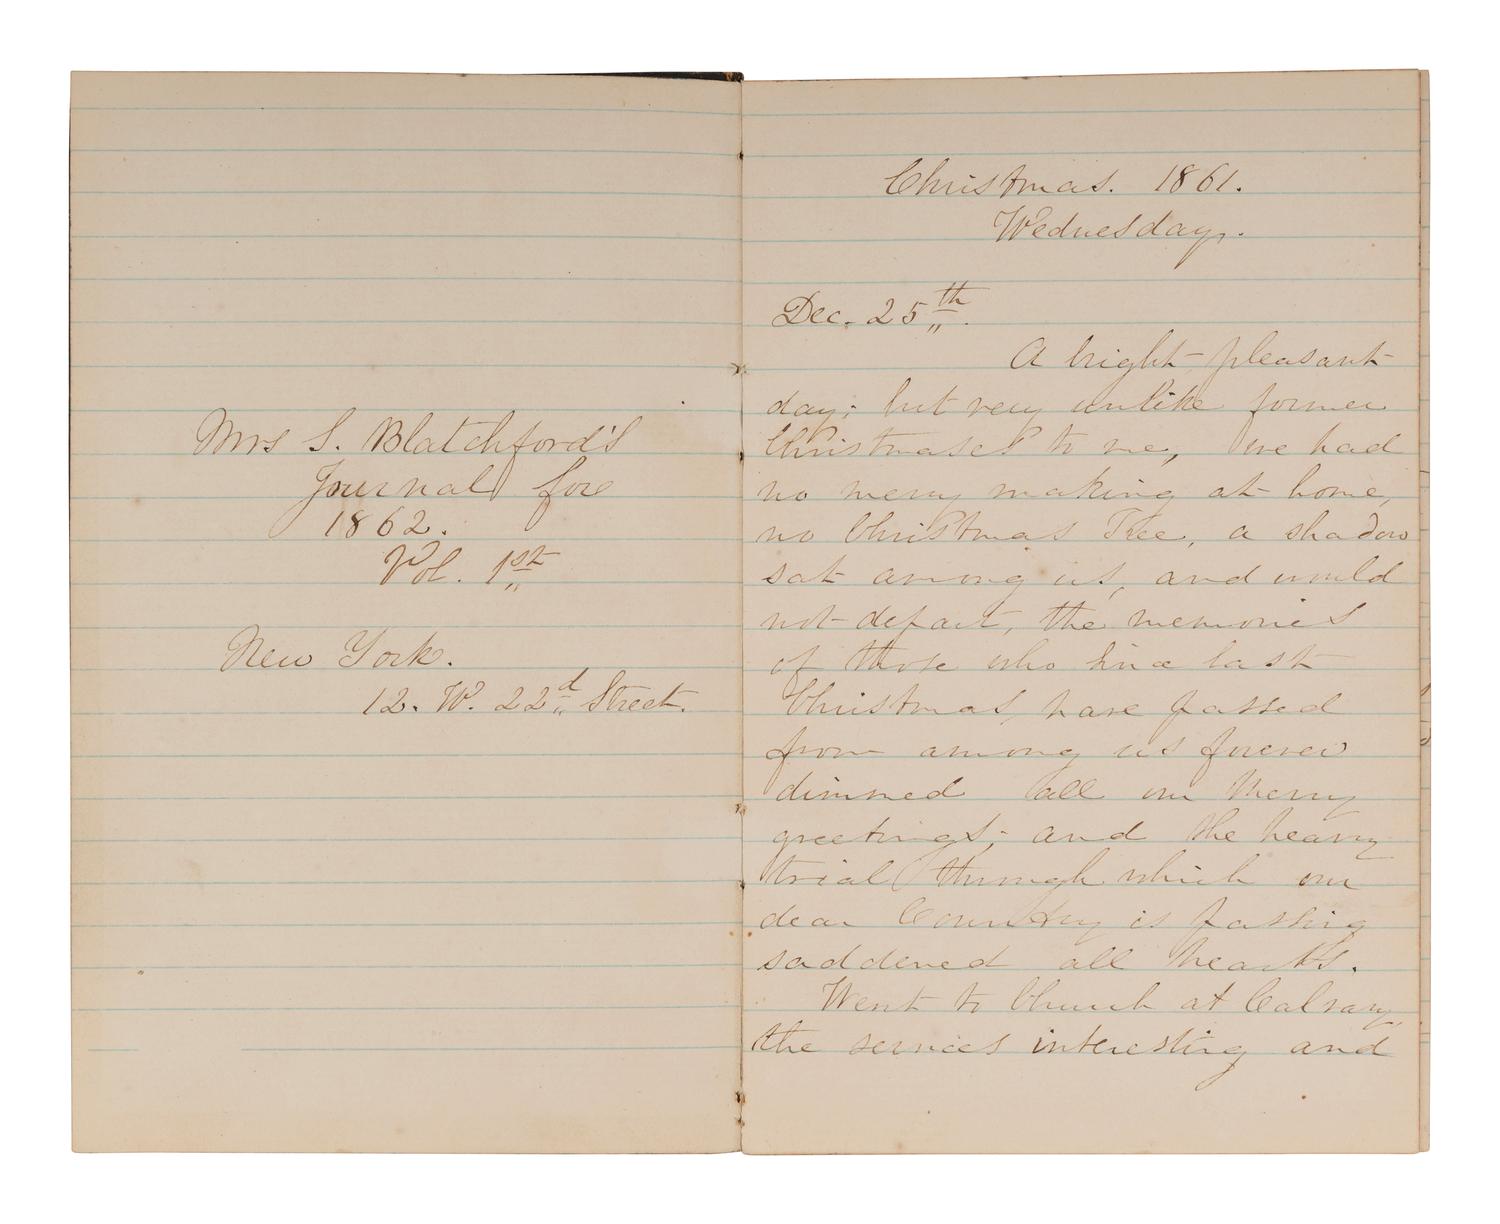 Mrs S. Blatchford's
Journal for
1862.
Vol. 1st
New York.
12. W. 22d Street.
Christmas. 1861.
Wednesday.
Dec. 25th.
A bright pleasant
day; but very unlike former
Christmases to me, we had
no merry making at home,
no Christmas Tree, a shadow
sat among us, and would
not depart, the memories
of those who since last
Christmas, have passed
from among us forever
dimmed all our merry
greetings; and the heavy
trial through which our
dear Country is passing
saddened all hearts.
Went to Church at Calvary,
the services interesting and